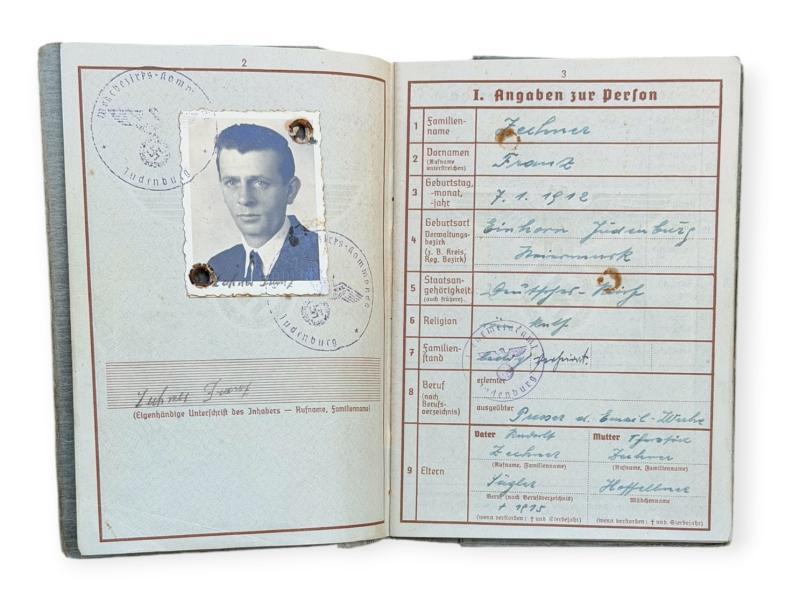 2
Wehrbezirks-Kommando
Judenburg
Wehrbezirks-Kommando
Judenburg
Zechner Franz
(Eigenhändige Unterschrift des Inhabers — Rufname, Familienname)
3
I. Angaben zur Person
1 Familien-
name
Zechner
2 Vornamen
(Rufname
unterstreichen)
Franz
3 Geburtstag,
-monat,
-jahr
7. 1. 1912
4 Geburtsort
Verwaltungs-
bezirk
(z. B. Kreis,
Reg. Bezirk)
Einhorn Judenburg
Steiermark
5 Staatsan-
gehörigkeit
(auch frühere)
Deutsches-Reich
6 Religion
kath
7 Familien-
stand
ledig
Gemeindeamt
Judenburg
8 Beruf
(nach
Berufs-
verzeichnis)
erlernter
ausgeübter
Presser
Email-Werke
9 Eltern
Vater Rudolf
Zechner
(Rufname, Familienname)
Beruf (nach Berufsverzeichnis)
† 1915
(wenn verstorben: † und Sterbejahr)
Mutter
Zechner
(Rufname, Familienname)
Mädchenname
(wenn verstorben: † und Sterbejahr)